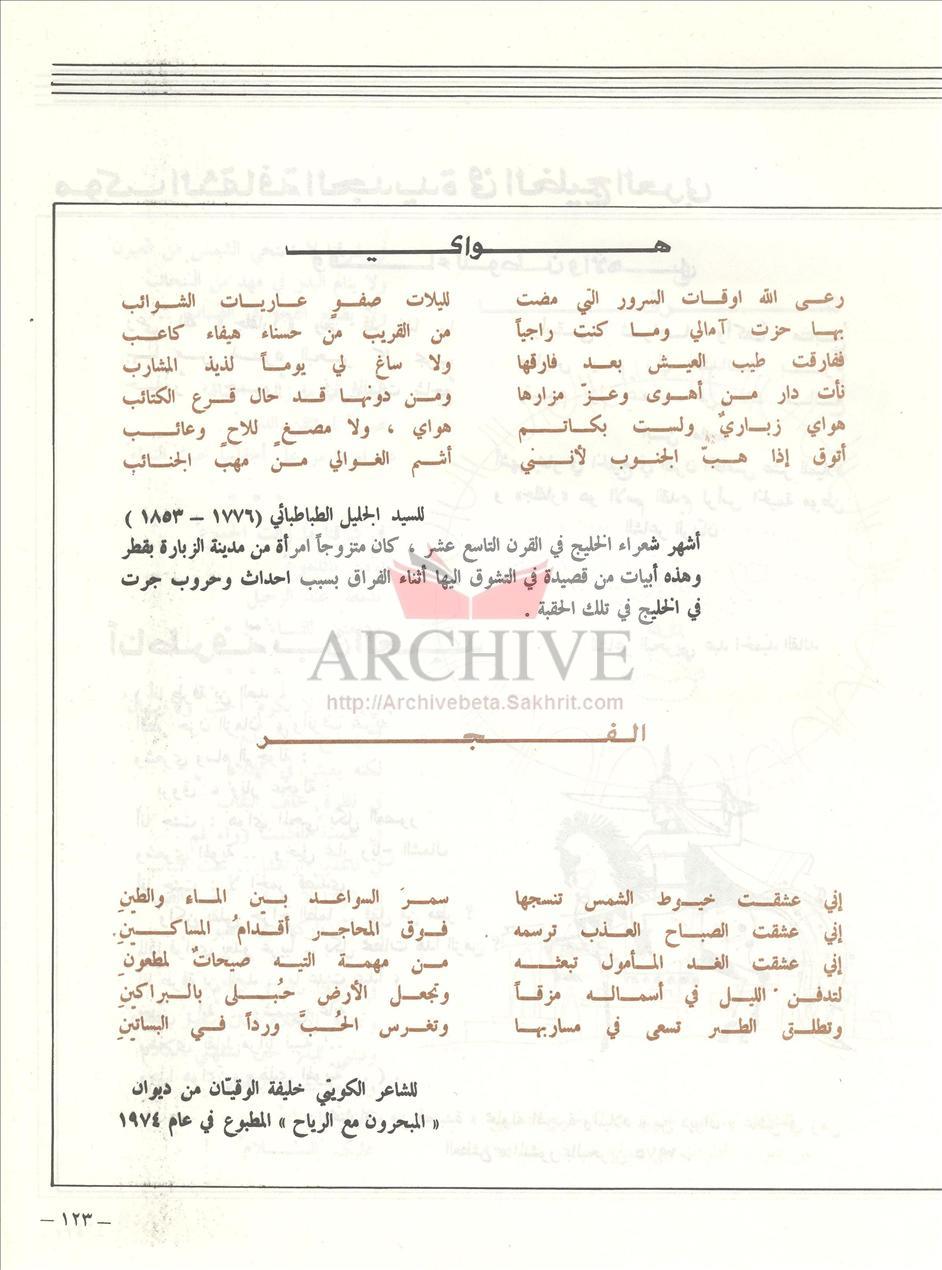 هواي
رعى الله اوقات السرور التي مضت لليلات صفوٍ عاريات الشوائب
بها حزت آمالي وما كنت راجياً من القريب من حسناء هيفاء كاعب
ففارقت طيب العيش بعد فارقها ولا ساغ لي يوماً لذيذ المشارب
نأت دار من أهوى وعزّ مزارها ومن دونها قد حال قرع الكتائب
هواي زباريٌ ولست بكاتم هواي ، ولا مصغٍ للاحٍ وعائب
أتوق إذا هبّ الجنوب لأنني أشم الغوالي من مهبّ الجنائب
للسيد الجليل الطباطبائي (١٧٧٦ – ١٨٥٣ )
أشهر شعراء الخليج في القرن التاسع عشر ، كان متزوجاً امرأة من مدينة الزبارة بقطر
وهذه أبيات من قصيدة في التشوق اليها أثناء الفراق بسبب احداث وحروب جرت
في الخليج في تلك الحقبة .
ARCHIVE
http://Archivebeta.Sakhrit.com
الفجر
إني عشقت خيوط الشمس تنسجها سمرَ السواعد بين الماء والطينِ
إني عشقت الصباح العذب ترسمه فوق المحاجر أقدامُ المساكينِ.
إني عشقت الغد المأمول تبعثه من مهمة التيه صيحاتٌ لمطعونِ
لتدفن الليل في أسماله مزقاً وتجعل الأرض حُبلى بالبراكينِ
وتطلق الطير تسعى في مساربها وتغرس الحُبَّ ورداً في البساتينِ
للشاعر الكويتي خليفة الوقيّان من ديوان
« المبحرون مع الرياح » المطبوع في عام ١٩٧٤
– ١٢٣ –